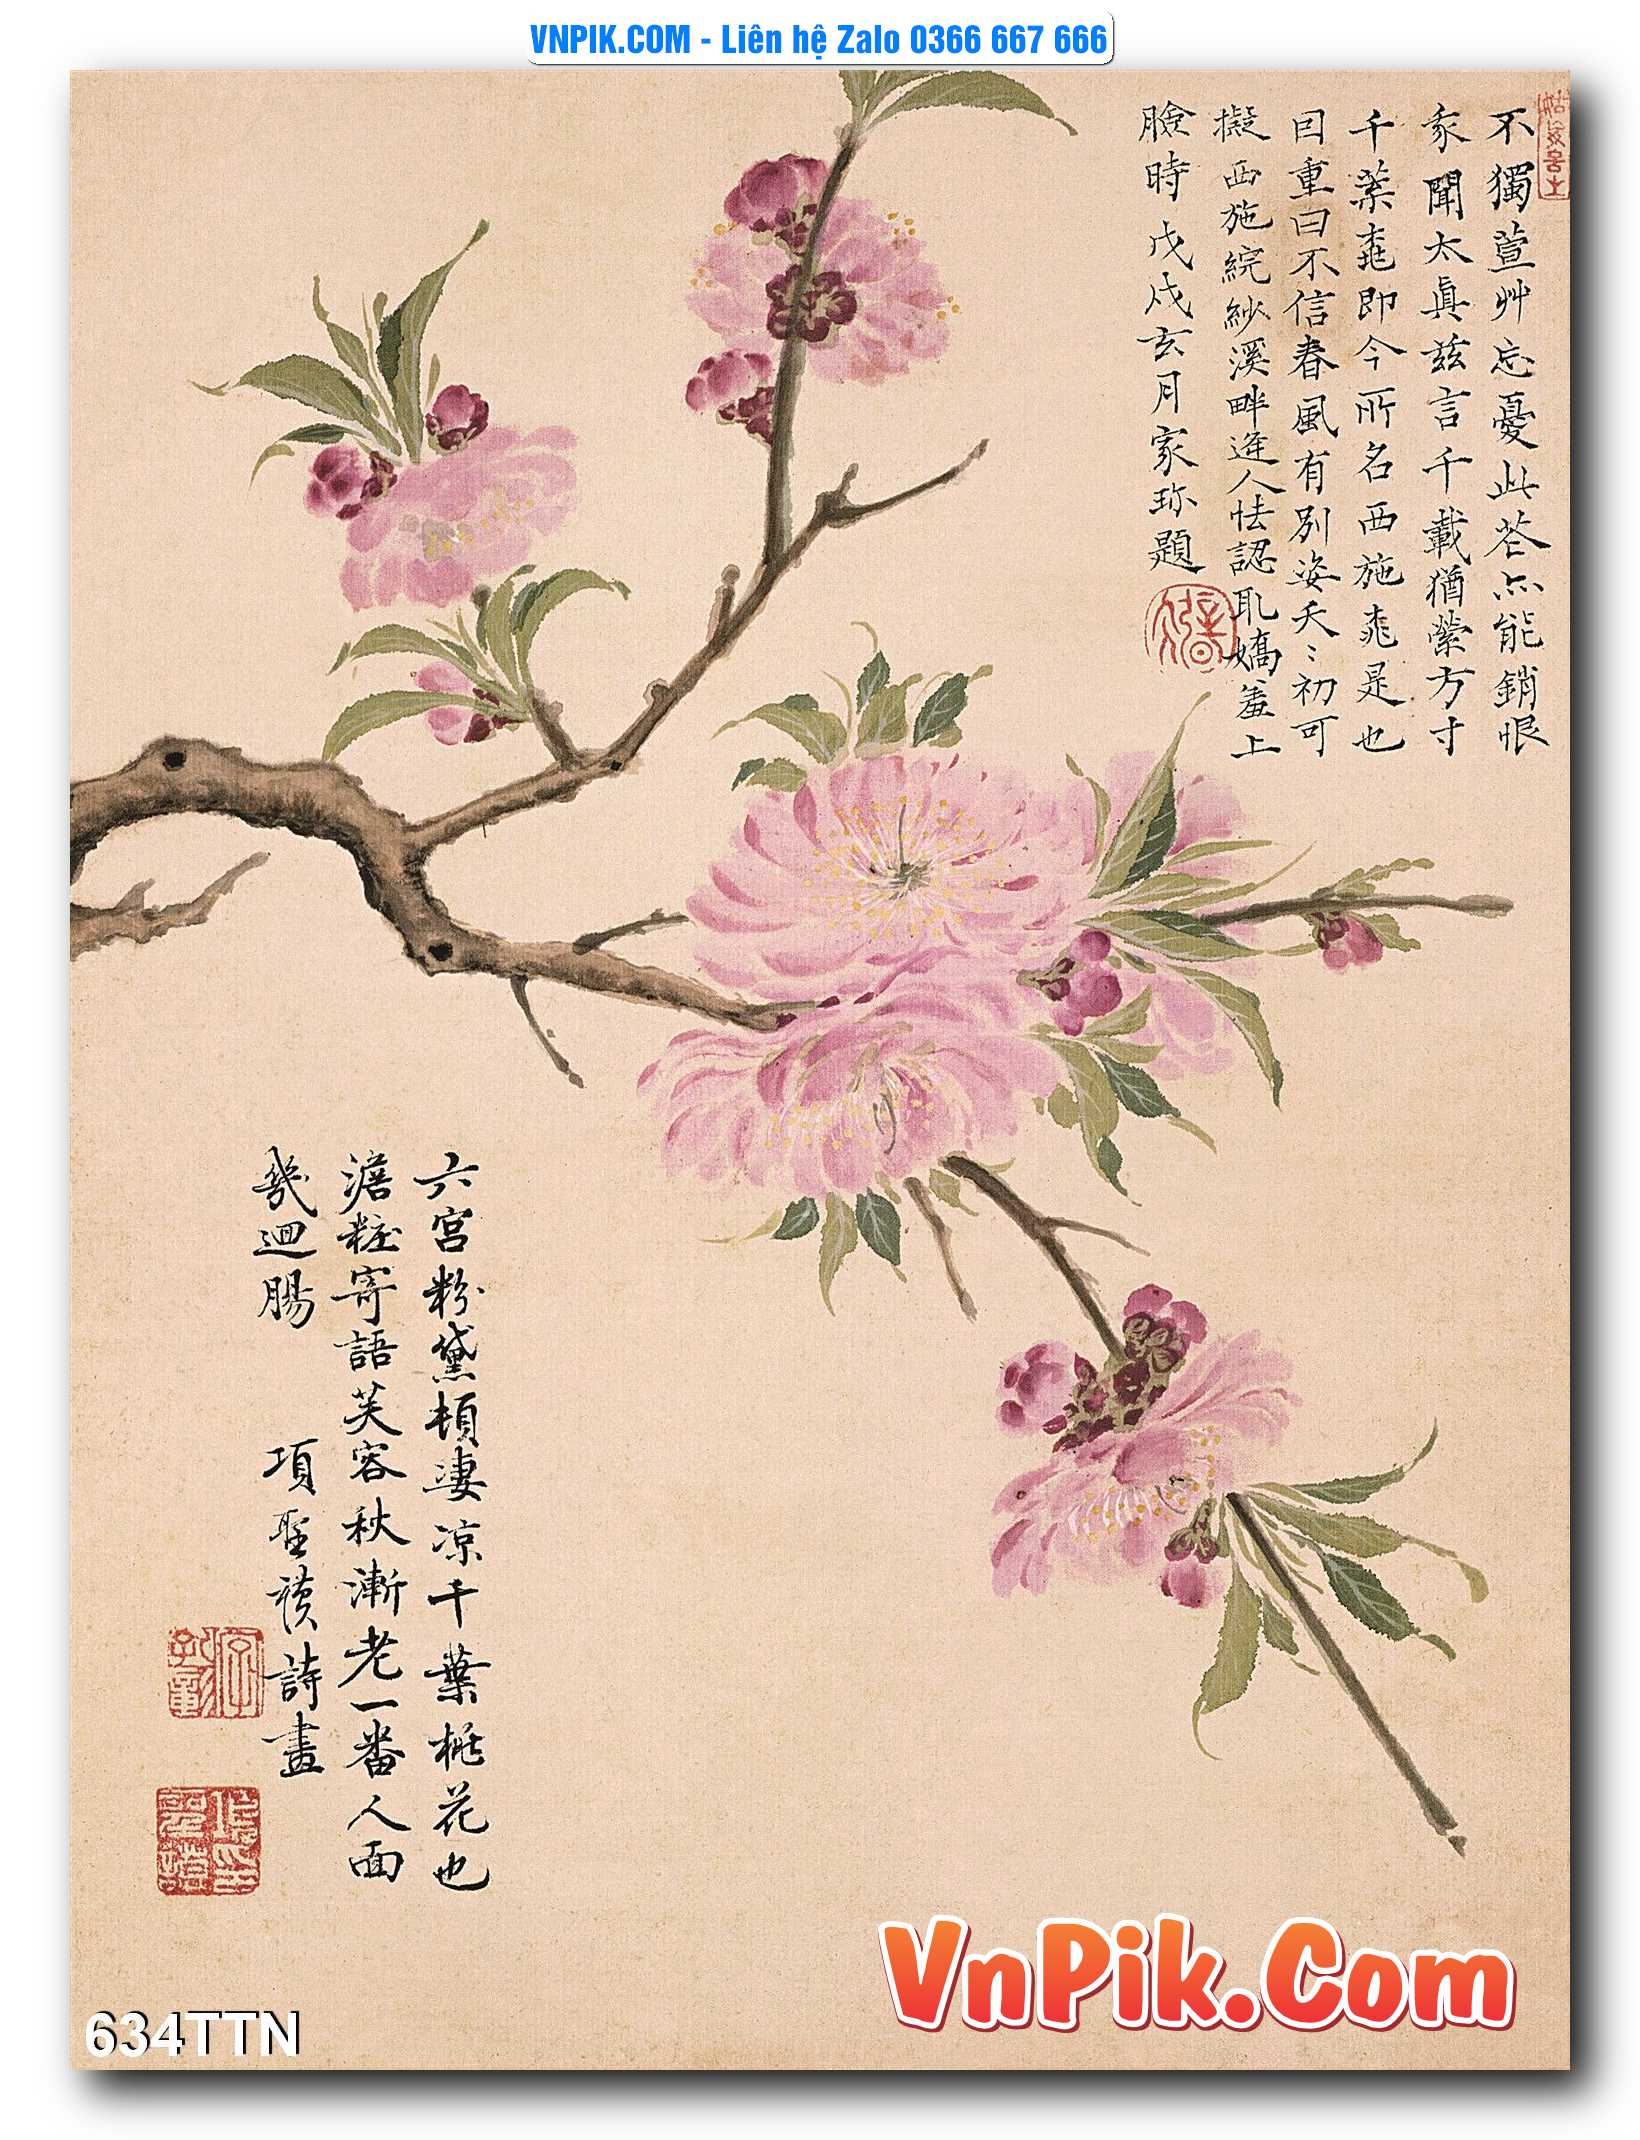 VNPIK.COM - Liên hệ Zalo 0366 667 666
不獨萱艸忘憂此苍亦能銷恨
象聞太眞兹言千載猶縈方寸
千葉桃即今所名西施桃是也
曰不信春風有別姿夭〻初可
擬西施浣紗溪畔逢人怯認取嬌羞上
臉時 戊戌玄月家珎題
六宮粉黛頓淒凉千葉桃花也
澹粧寄語芙容秋漸老一番人面
幾迴腸 項聖謨詩畫
VnPik.Com
634TTN